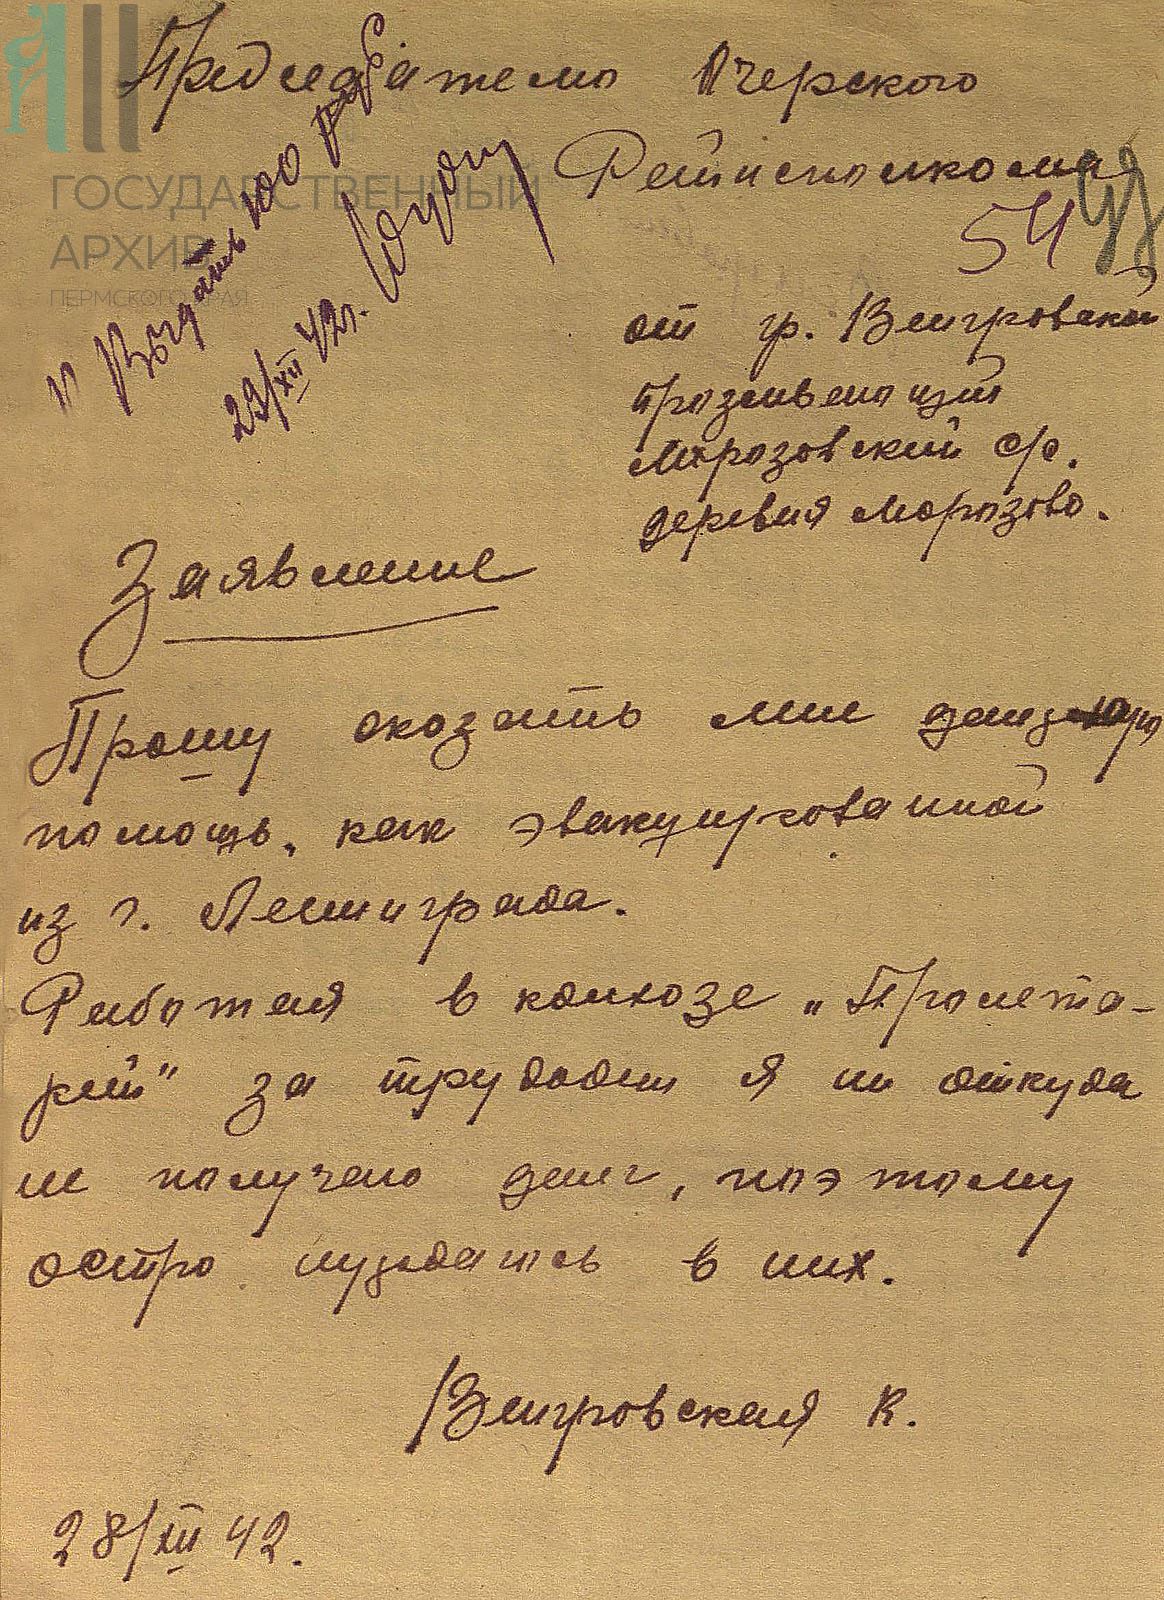 Председателю Очерского
Райисполкома
ГОСУДАРСТВЕННЫЙ
АРХИВ
ПЕРМСКОГО КРАЯ
Выдать 100 руб
29/XII 42г.
54
от гр. Венгровской
проживающий
Морозовский с/с.
деревня Морозово.
Заявление
Прошу оказать мне
помощь, как эвакуированной
из г. Ленинграда.
Работая в колхозе „Пролета-
рей" за трудодни я ни откуда
не получаю денег, поэтому
остро нуждаюсь в них.
Венгровская К.
28/XII 42.